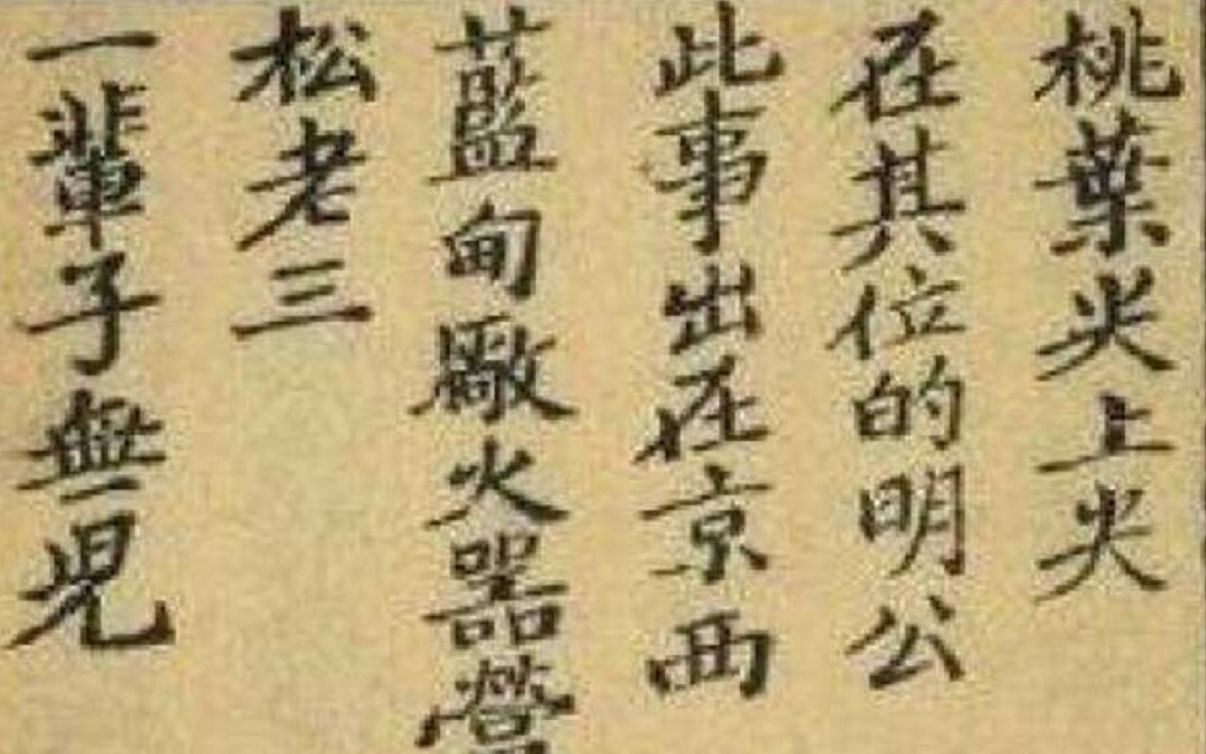 桃葉尖上尖
在其位的明公
此事出在京西
藍甸廠火器營
松老三
一輩子無兒